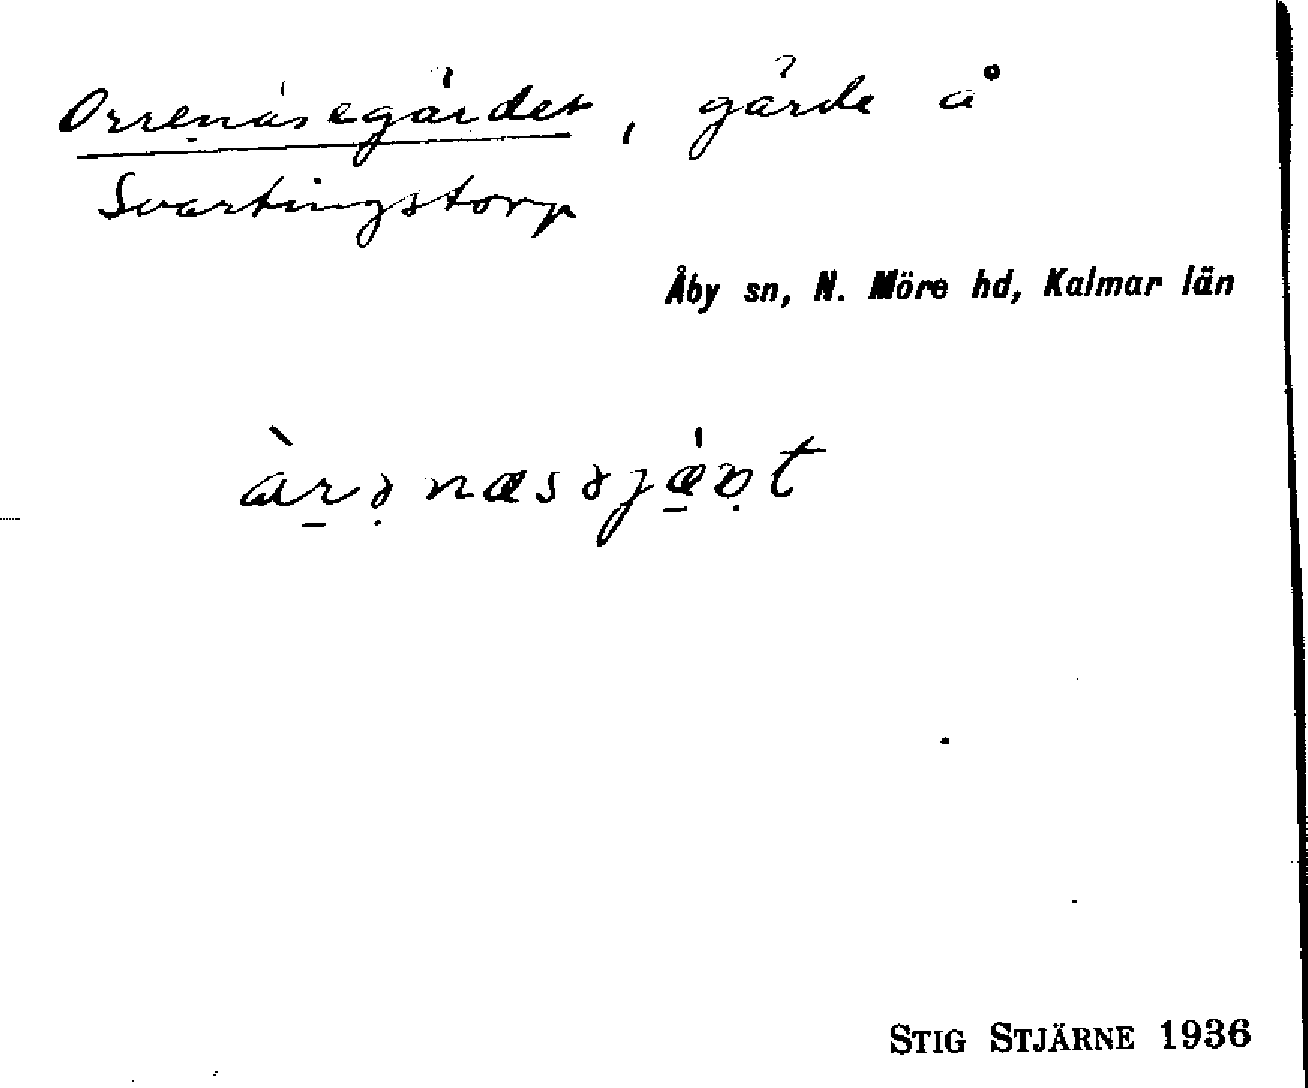 Orrenäsegärdet, gärde å
Svartingstorp
Åby sn, N. Möre hd, Kalmar län
STIG STJÄRNE 1936